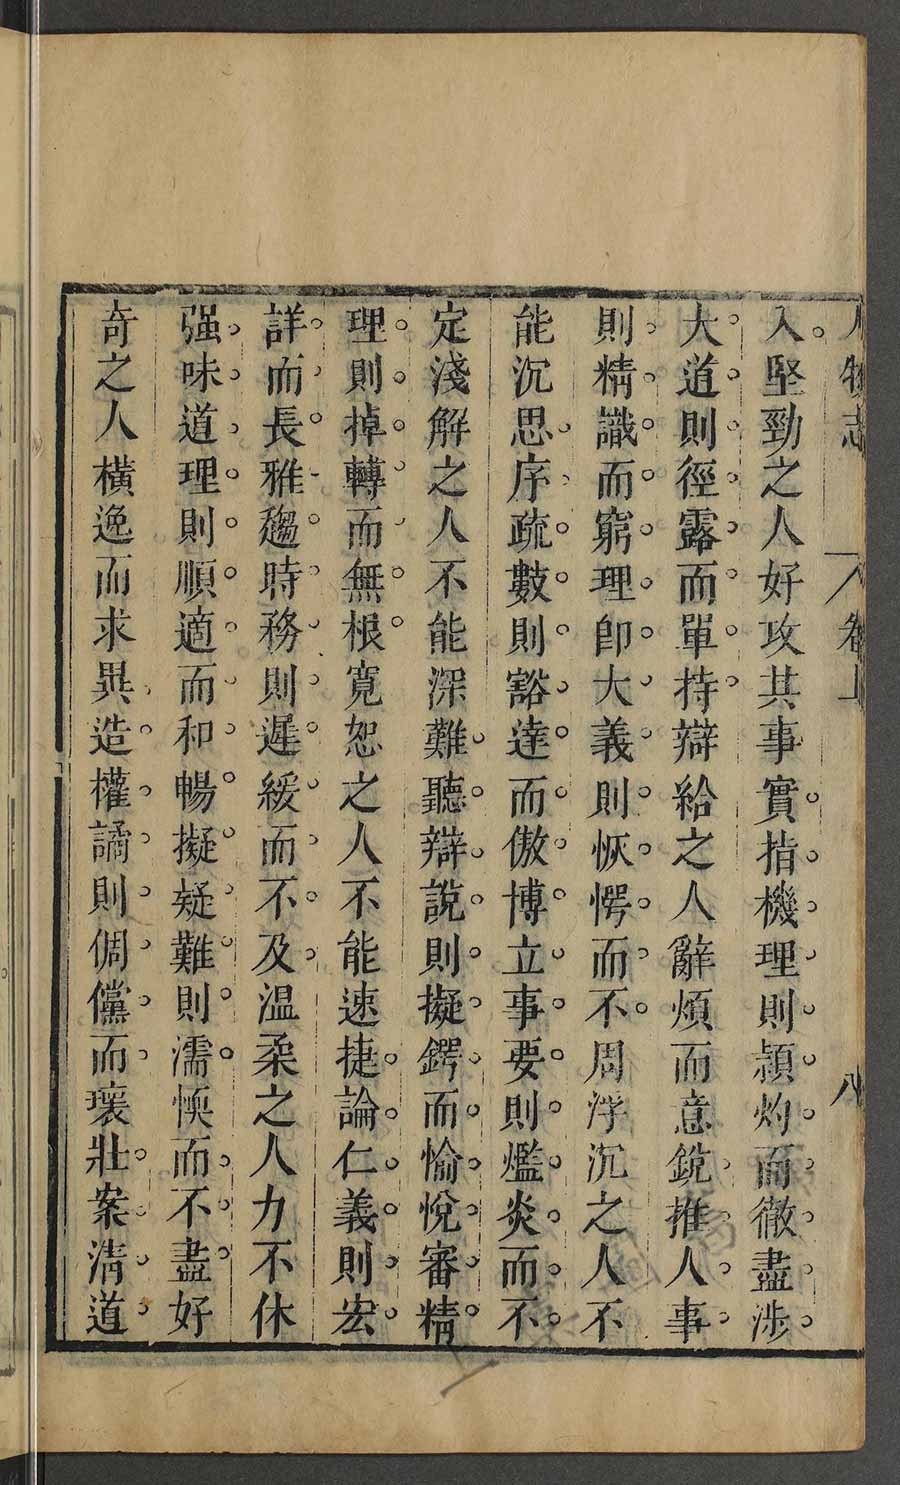 人物志 卷上 八
入堅勁之人好攻其事實指機理則頴灼而徹盡涉
大道則徑露而單持辯給之人辭煩而意銳推人事
則精識而窮理卽大義則恢愕而不周浮沉之人不
能沉思序疏數則豁達而傲博立事要則爁炎而不
定淺解之人不能深難聽辯說則擬鍔而愉悅審精
理則掉轉而無根寛恕之人不能速捷論仁義則宏
詳而長雅趨時務則遲緩而不及温柔之人力不休
强味道理則順適而和暢擬疑難則濡愞而不盡好
奇之人橫逸而求異造權譎則倜儻而瓌壯案淸道